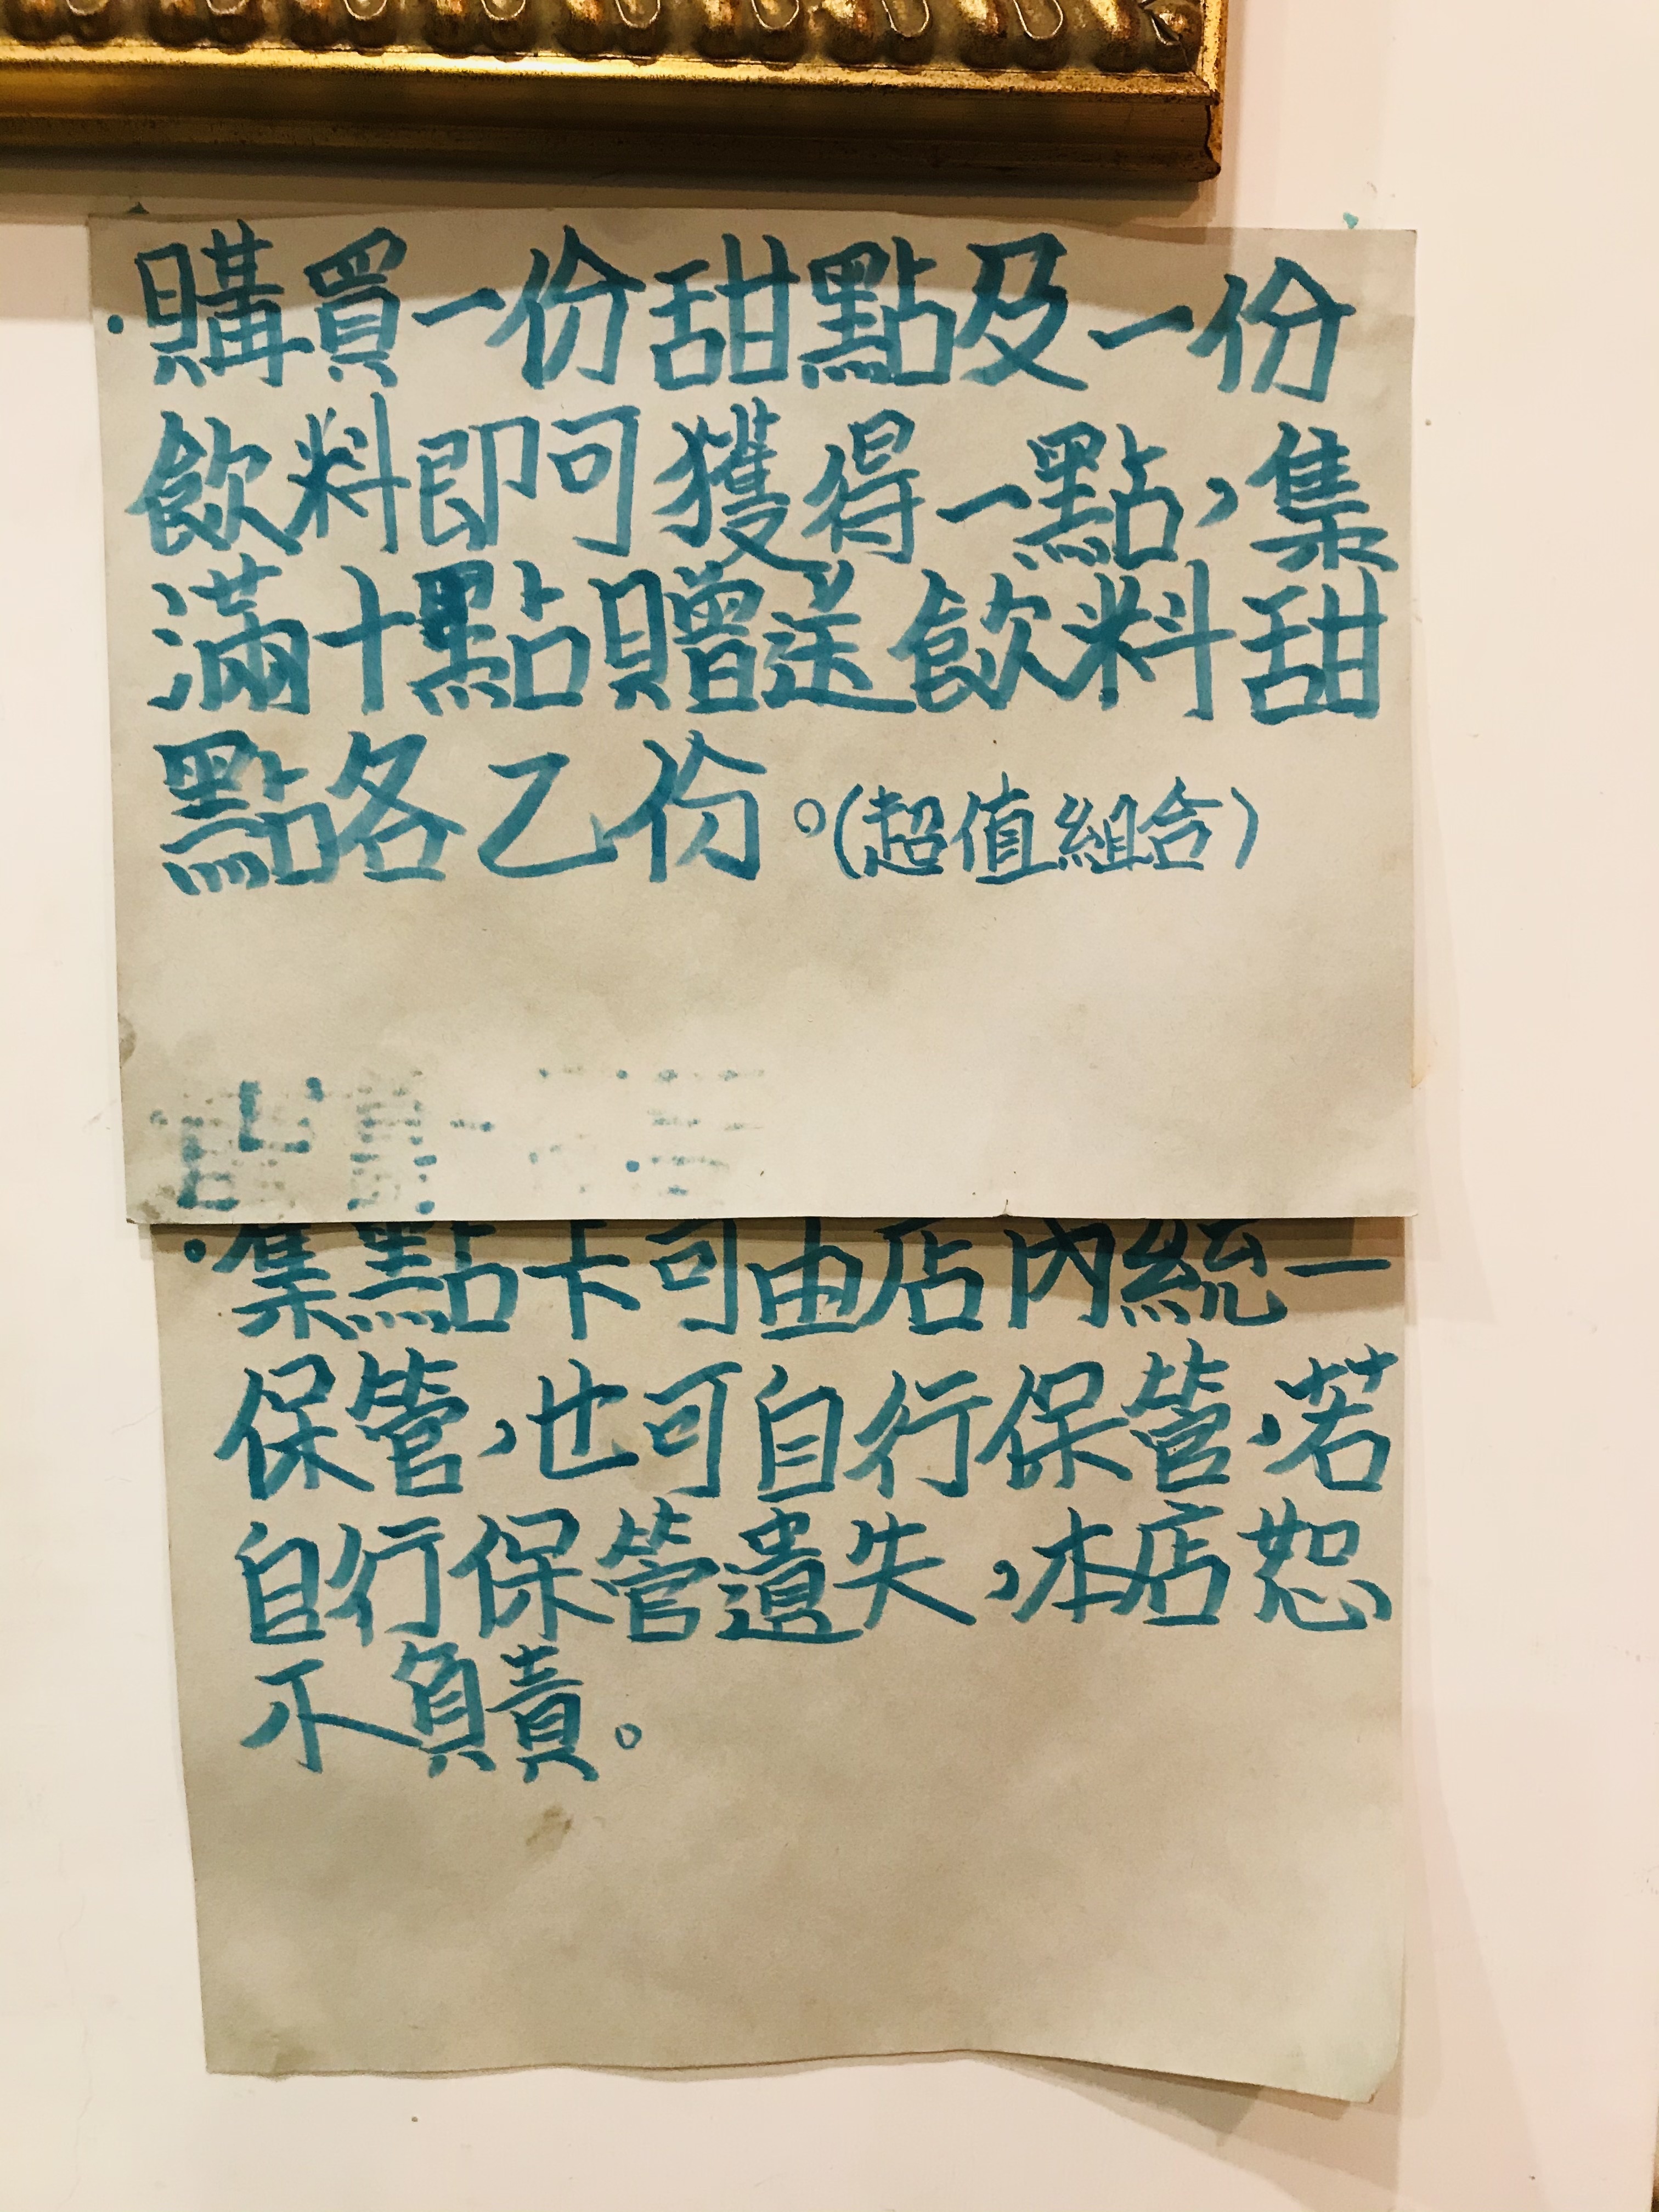 ·購買一份甜點及一份
飲料即可獲得一點,集
滿十點贈送飲料甜
點各乙份。(超值組合)
·集點卡可由店內統一
保管,也可自行保管,若
自行保管遺失,本店恕
不負責。